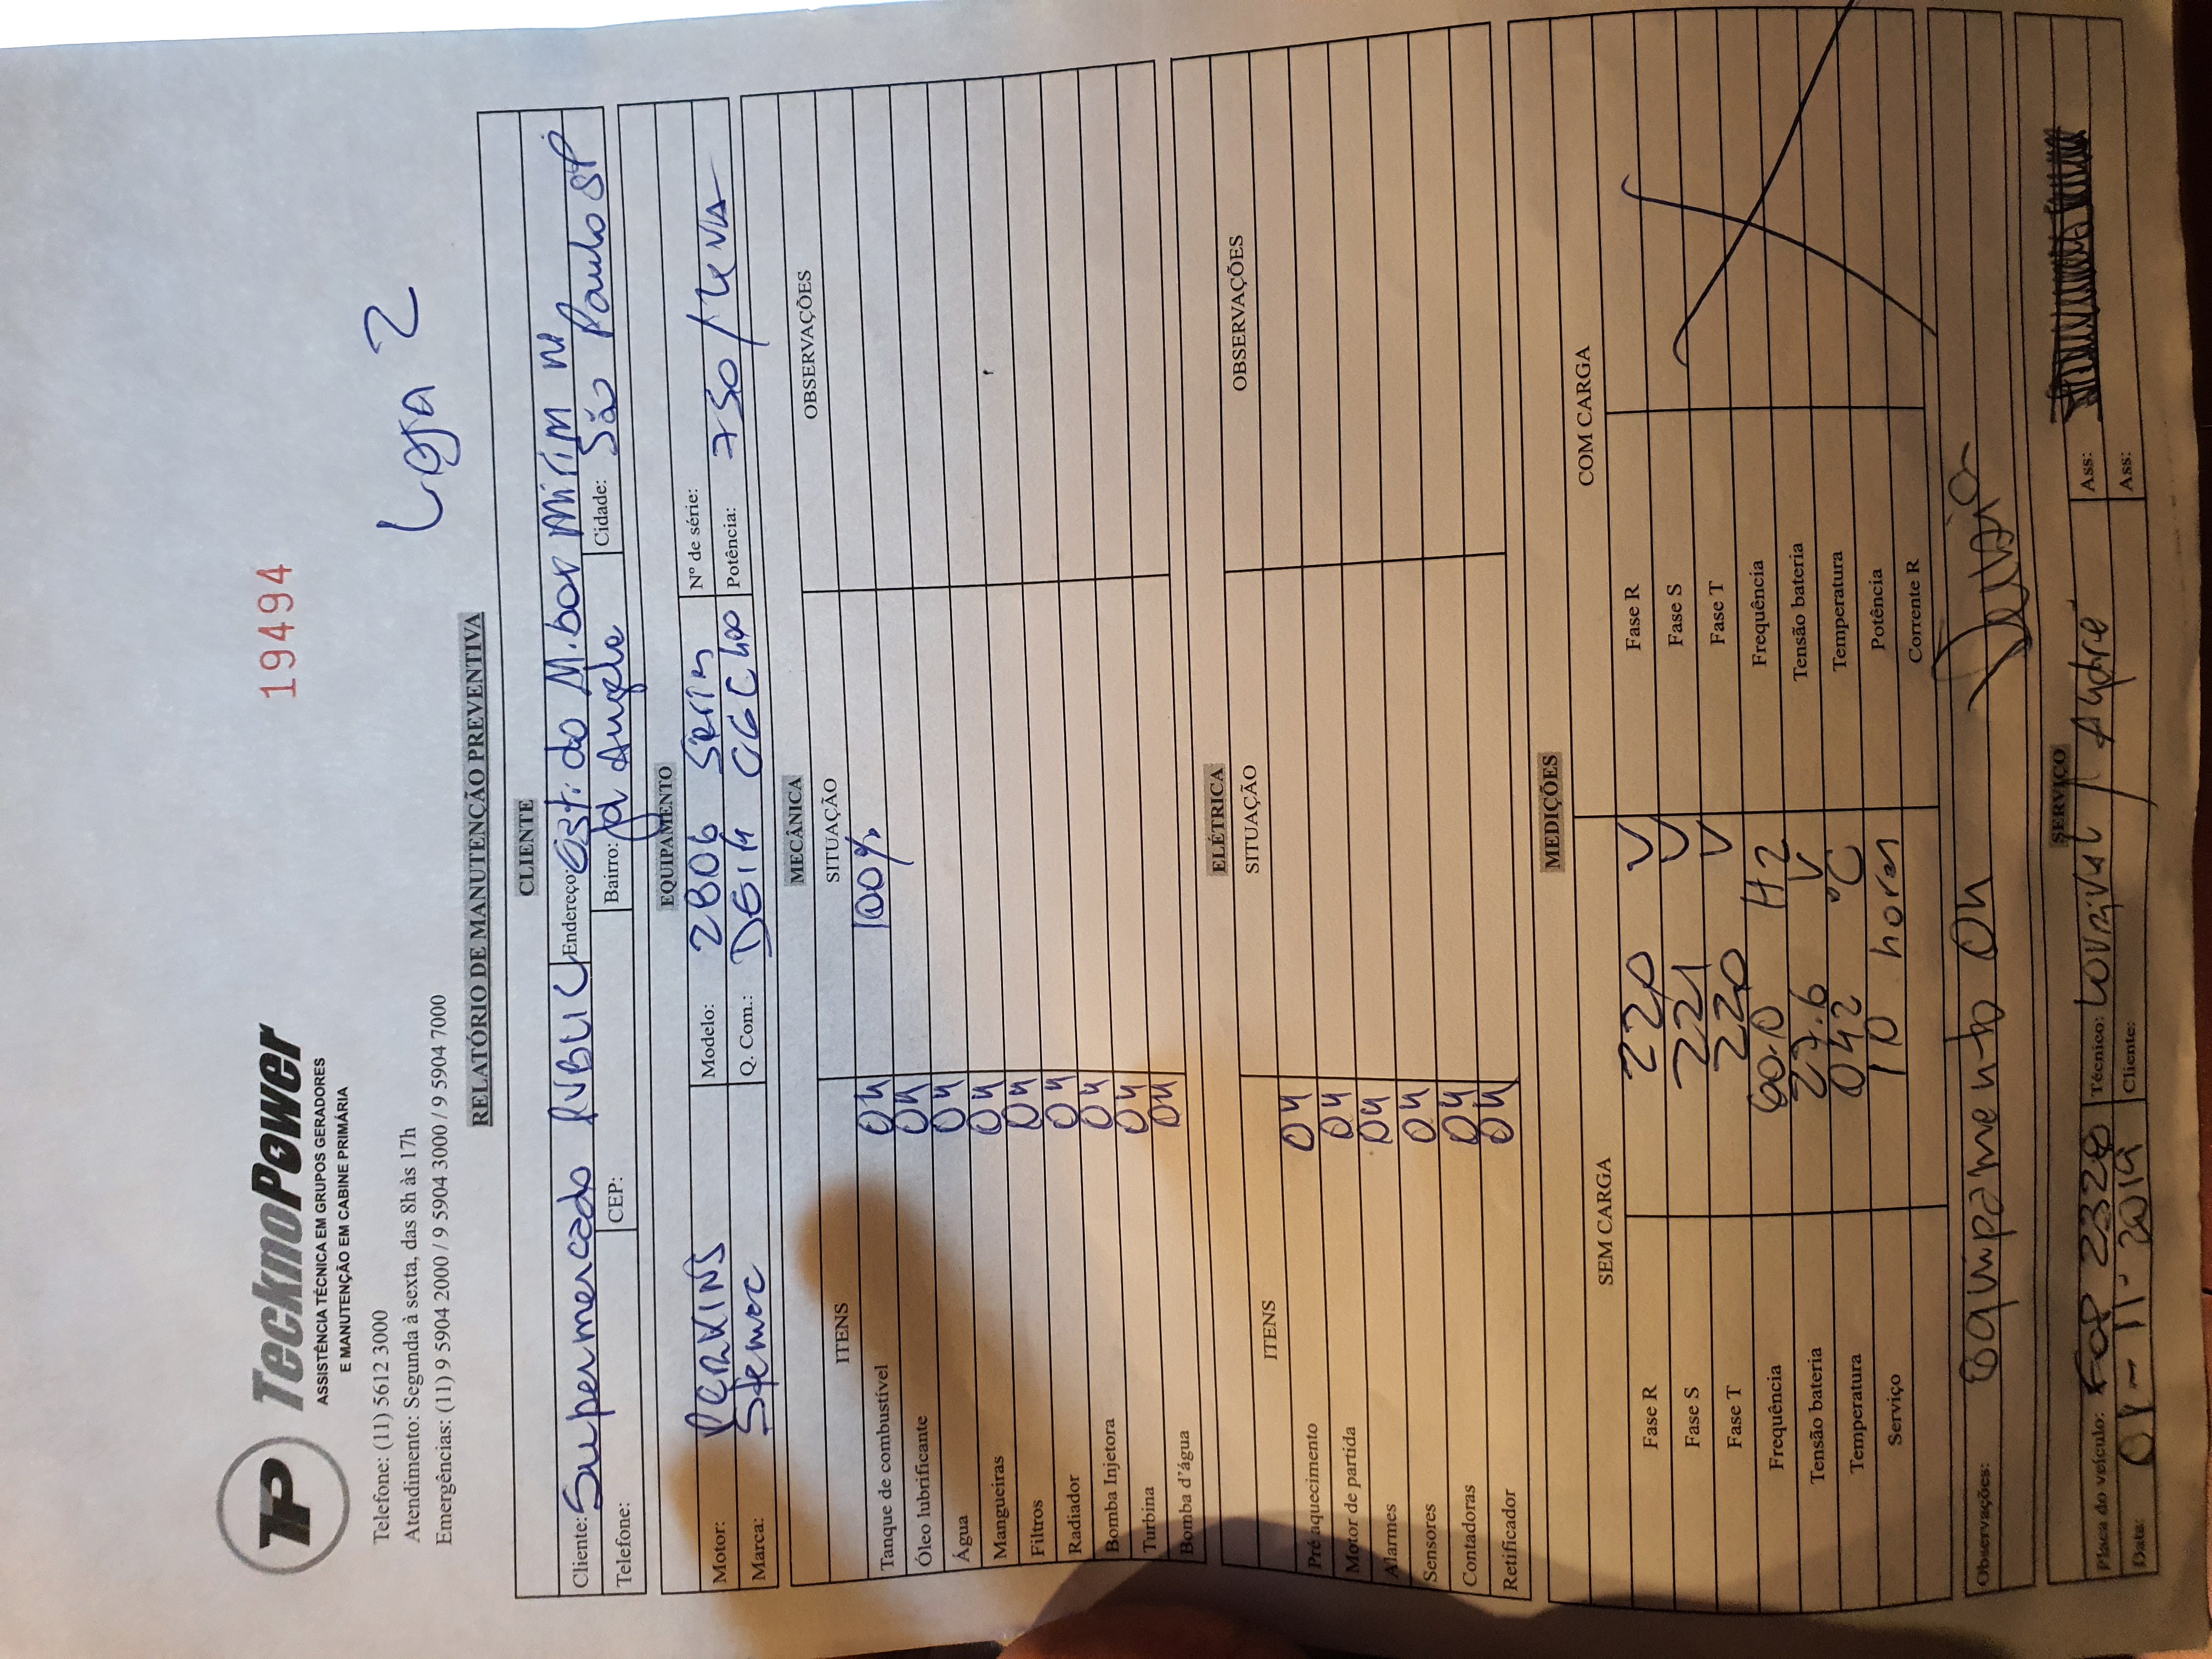 TP TecknoPower
19494
ASSISTÊNCIA TÉCNICA EM GRUPOS GERADORES
E MANUTENÇÃO EM CABINE PRIMÁRIA
Telefone: (11) 5612 3000
Atendimento: Segunda à sexta, das 8h às 17h
Loja 2
Emergências: (11) 9 5904 2000 / 9 5904 3000 / 9 5904 7000
RELATÓRIO DE MANUTENÇÃO PREVENTIVA
CLIENTE
Cliente: Supermercado PUBLIC Endereço: Est. do M.boy Mirim
Telefone: CEP: Bairro: Jd Angela Cidade: São Paulo SP
EQUIPAMENTO
Motor: PERKINS Modelo: 2806 Series Nº de série:
Marca: Stemac Q. Com.: CGC 400 Potência: 750 / KVA
MECÂNICA
ITENS SITUAÇÃO OBSERVAÇÕES
Tanque de combustível OK 100%
Óleo lubrificante OK
Água OK
Mangueiras OK
Filtros OK
Radiador OK
Bomba Injetora OK
Turbina OK
Bomba d'água OK
ELÉTRICA
ITENS SITUAÇÃO OBSERVAÇÕES
Pré aquecimento OK
Motor de partida OK
Alarmes OK
Sensores OK
Contadoras OK
Retificador OK
MEDIÇÕES
SEM CARGA COM CARGA
Fase R 220 V Fase R
Fase S 221 V Fase S
Fase T 220 V Fase T
Frequência 60.0 Hz Frequência
Tensão bateria 27.6 V Tensão bateria
Temperatura 042 °C Temperatura
Serviço 10 horas Potência
Corrente R
Observações: Equipamento OK
SERVIÇO
Placa do veículo: 2328 Técnico: Lourival / André Ass:
Data: 01-11-2019 Cliente: Ass: